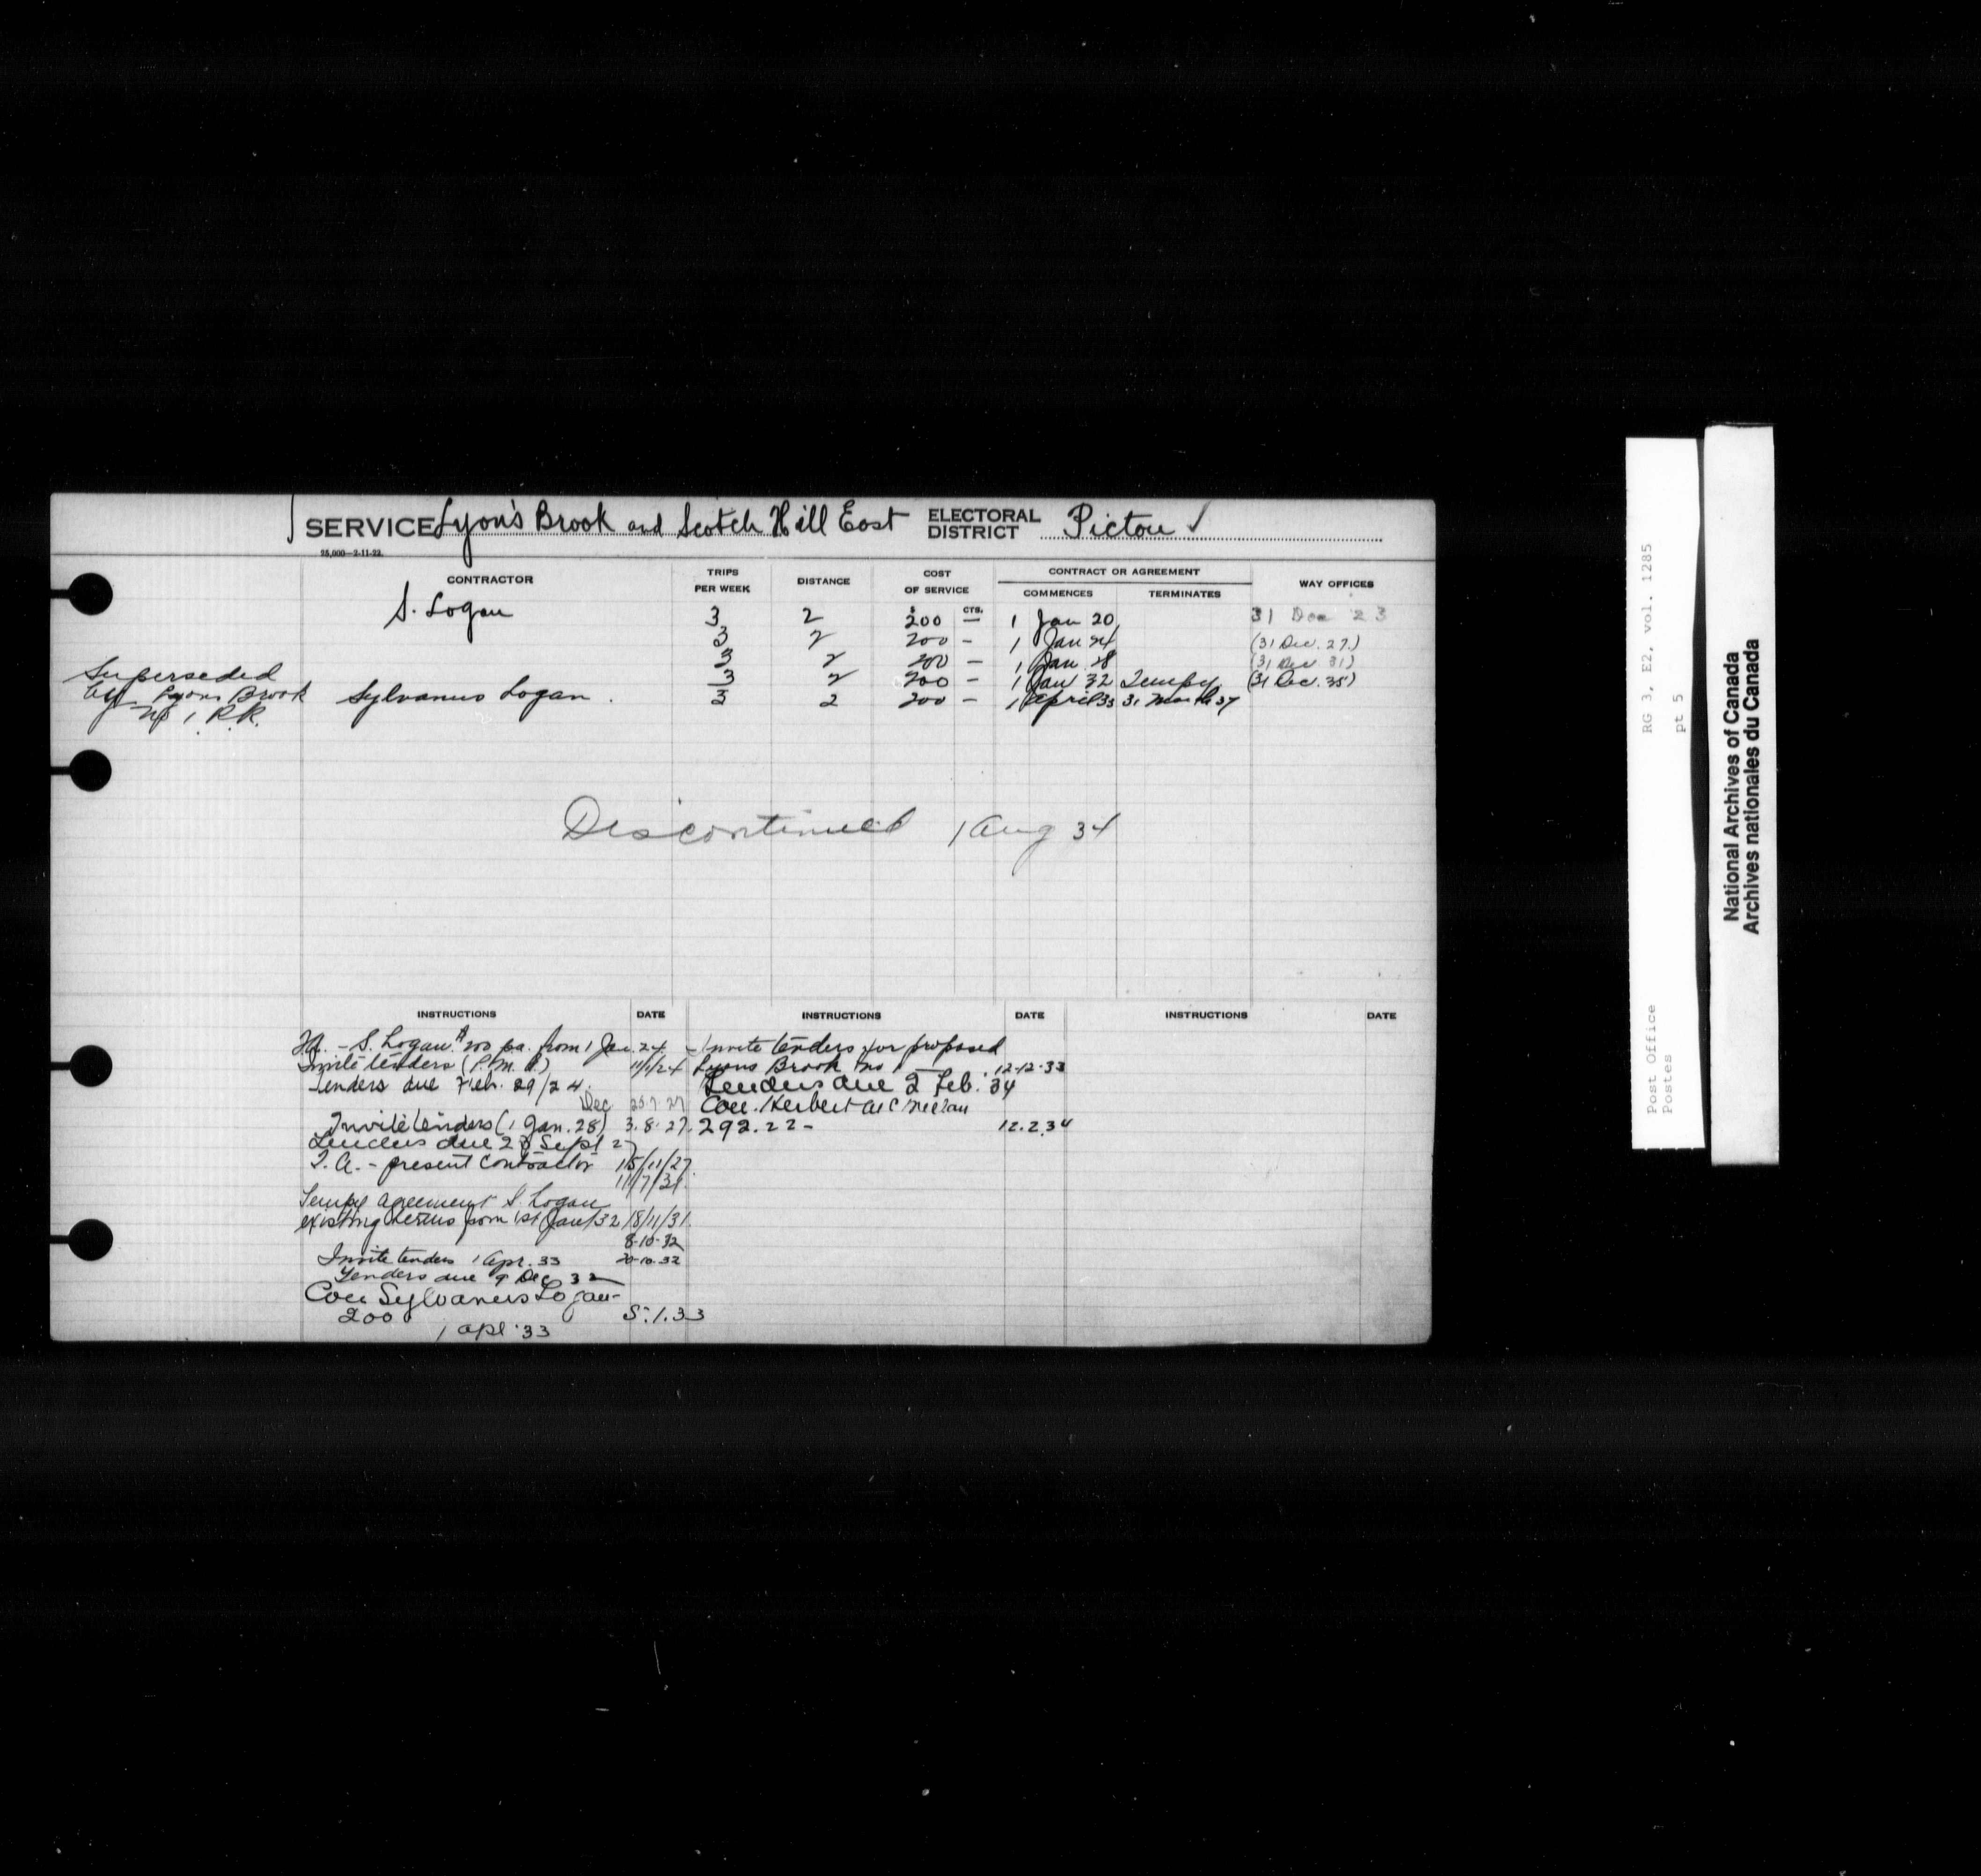 SERVICE Lyon's Brook and Scotch Hill East ELECTORAL DISTRICT Pictou ✓
25,000—2-11-22.
CONTRACTOR TRIPS PER WEEK DISTANCE COST OF SERVICE CONTRACT OR AGREEMENT COMMENCES TERMINATES WAY OFFICES
$ CTS.
S. Logan 3 2 200 — 1 Jan 20 31 Dec 23
3 2 200 - 1 Jan 24 (31 Dec. 27.)
3 2 200 — 1 Jan 28 (31 Dec 31)
Superseded 3 2 200 - 1 Jan 32 Tempy. (31 Dec. 35)
by Lyons Brook Sylvanus Logan. 3 2 200 - 1 April 33 31 March 37
No 1 R.R.
Discontinued 1 Aug 34
INSTRUCTIONS DATE INSTRUCTIONS DATE INSTRUCTIONS DATE
T.A. - S. Logan $200 pa. from 1 Jan. 24.
Invite tenders (P.M.G.) 11/1/24
Tenders due Feb. 29/24.
Dec 25.7.27
Invite tenders (1 Jan. 28) 3.8.27.
Tenders due 23 Sept 27
T.A. - present contractor 15/11/27.
11/7/31.
Tempy agreement S. Logan
existing terms from 1st Jan/32 18/11/31.
8-10-32
Invite tenders 1 Apr. 33 20-10-32
Tenders due 9 Dec 32
Con Sylvanus Logan-
200 5.1.33
1 Apl '33
Invite tenders for proposed
Lyons Brook No 1 12-12-33
Tenders due 2 Feb. '34
Con. Herbert
292.22- 12.2.34
RG 3, E2, vol. 1285
pt 5
Post Office
Postes
National Archives of Canada
Archives nationales du Canada